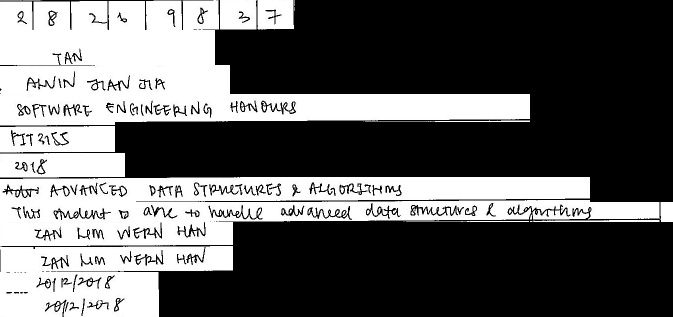 2 8 2 6 9 8 3 7
TAN
ALVIN JIAN JIA
SOFTWARE ENGINEERING HONOURS
FIT3155
2018
ADVANCED DATA STRUCTURES & ALGORITHMS
This student is able to handle advanced data structures & algorithms
IAN LIM WERN HAN
IAN LIM WERN HAN
20/12/2018
20/12/2018